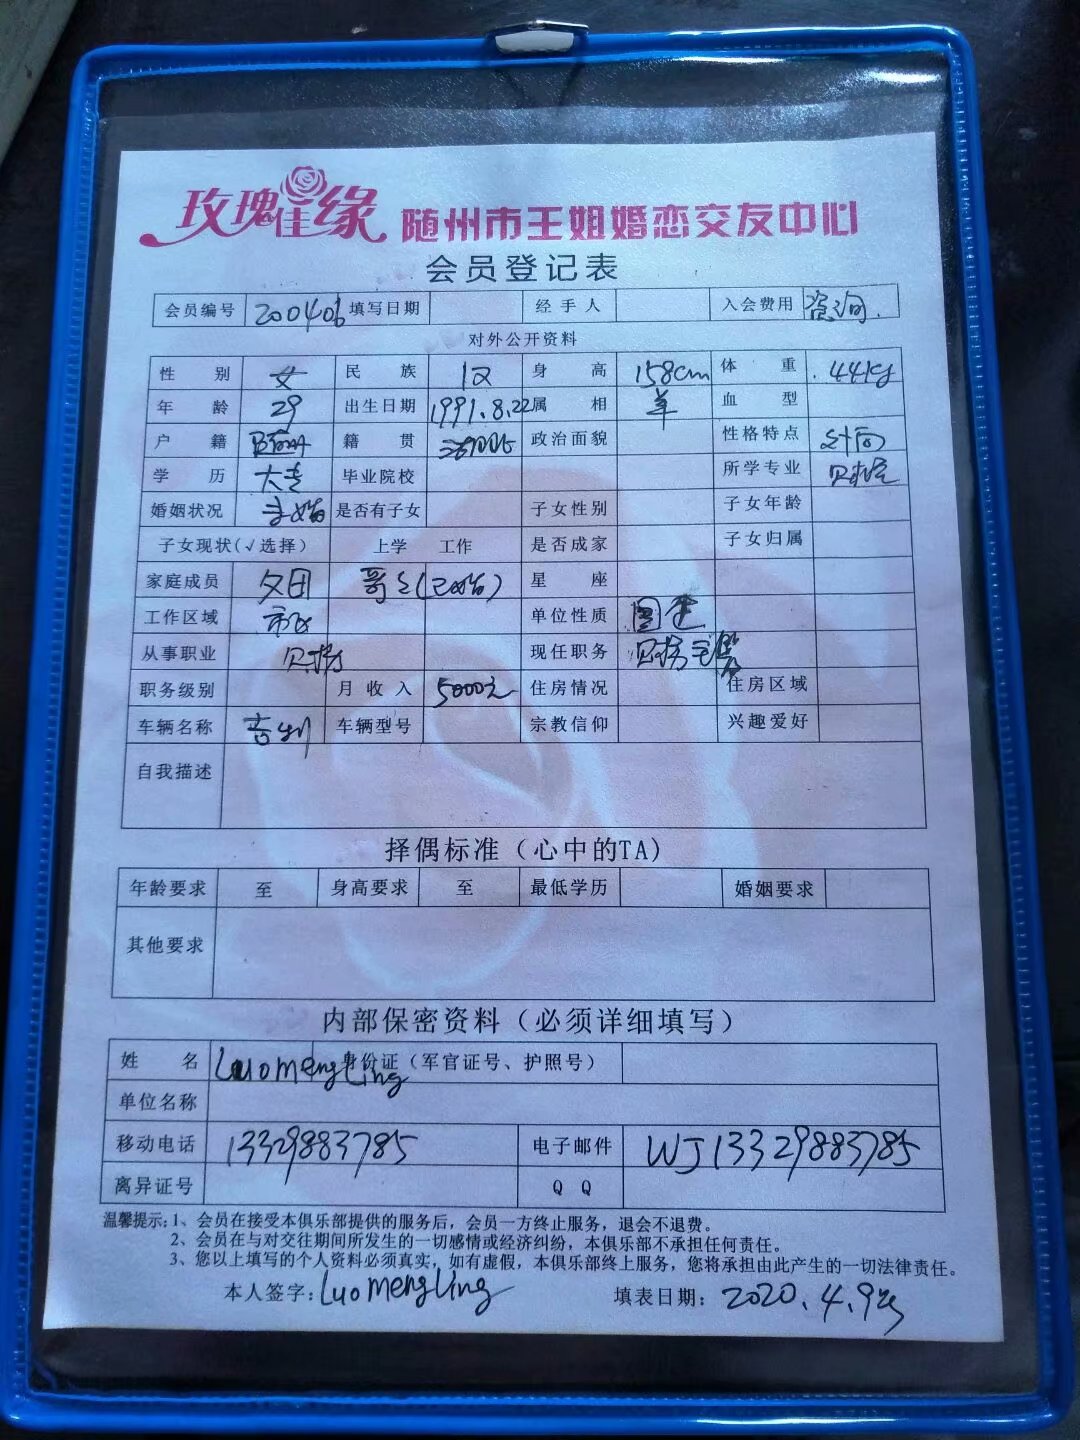 玫瑰佳缘 随州市王姐婚恋交友中心
会员登记表
会员编号 200406 填写日期 经手人 入会费用 资询.
对外公开资料
性别 女 民族 汉 身高 158cm 体重 44kg
年龄 29 出生日期 1991.8.22 属相 羊 血型
户籍 随州 籍贯 政治面貌 性格特点 外向
学历 大专 毕业院校 所学专业
婚姻状况 未婚 是否有子女 子女性别 子女年龄
子女现状(√选择) 上学 工作 是否成家 子女归属
家庭成员 父母 哥哥(已婚) 星座
工作区域 市区 单位性质
从事职业 财务 现任职务 财务主管
职务级别 月收入 5000元 住房情况 住房区域
车辆名称 吉利 车辆型号 宗教信仰 兴趣爱好
自我描述
择偶标准（心中的TA)
年龄要求 至 身高要求 至 最低学历 婚姻要求
其他要求
内部保密资料（必须详细填写）
姓名 Luo mengLing 身份证（军官证号、护照号）
单位名称
移动电话 13329883785 电子邮件 WJ13329883785
离异证号 QQ
温馨提示:1、会员在接受本俱乐部提供的服务后，会员一方终止服务，退会不退费。
2、会员在与对交往期间所发生的一切感情或经济纠纷，本俱乐部不承担任何责任。
3、您以上填写的个人资料必须真实，如有虚假，本俱乐部终上服务，您将承担由此产生的一切法律责任。
本人签字:Luo mengLing 填表日期: 2020.4.9号